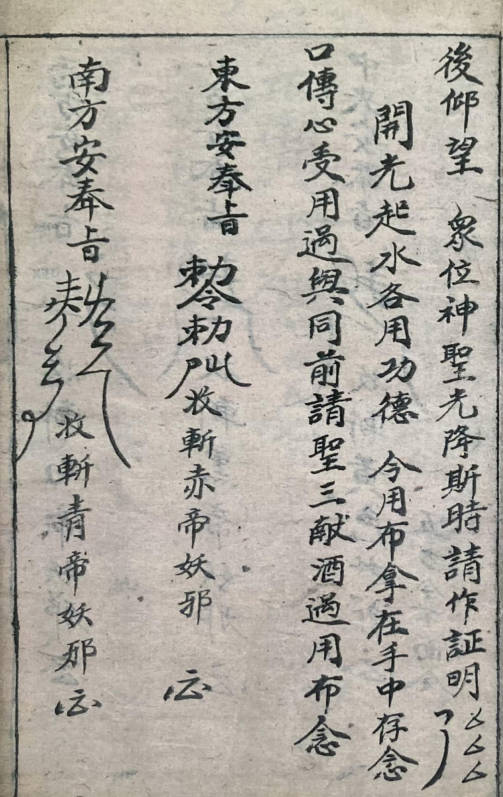 後仰望 衆位神聖光降斯時請作証明
開光起水各用功德 今用布拿在手中存念
口傳心受用過與同前請聖三献酒過用布念
東方安奉旨 勅令 收斬赤帝妖邪
南方安奉旨 收斬青帝妖邪